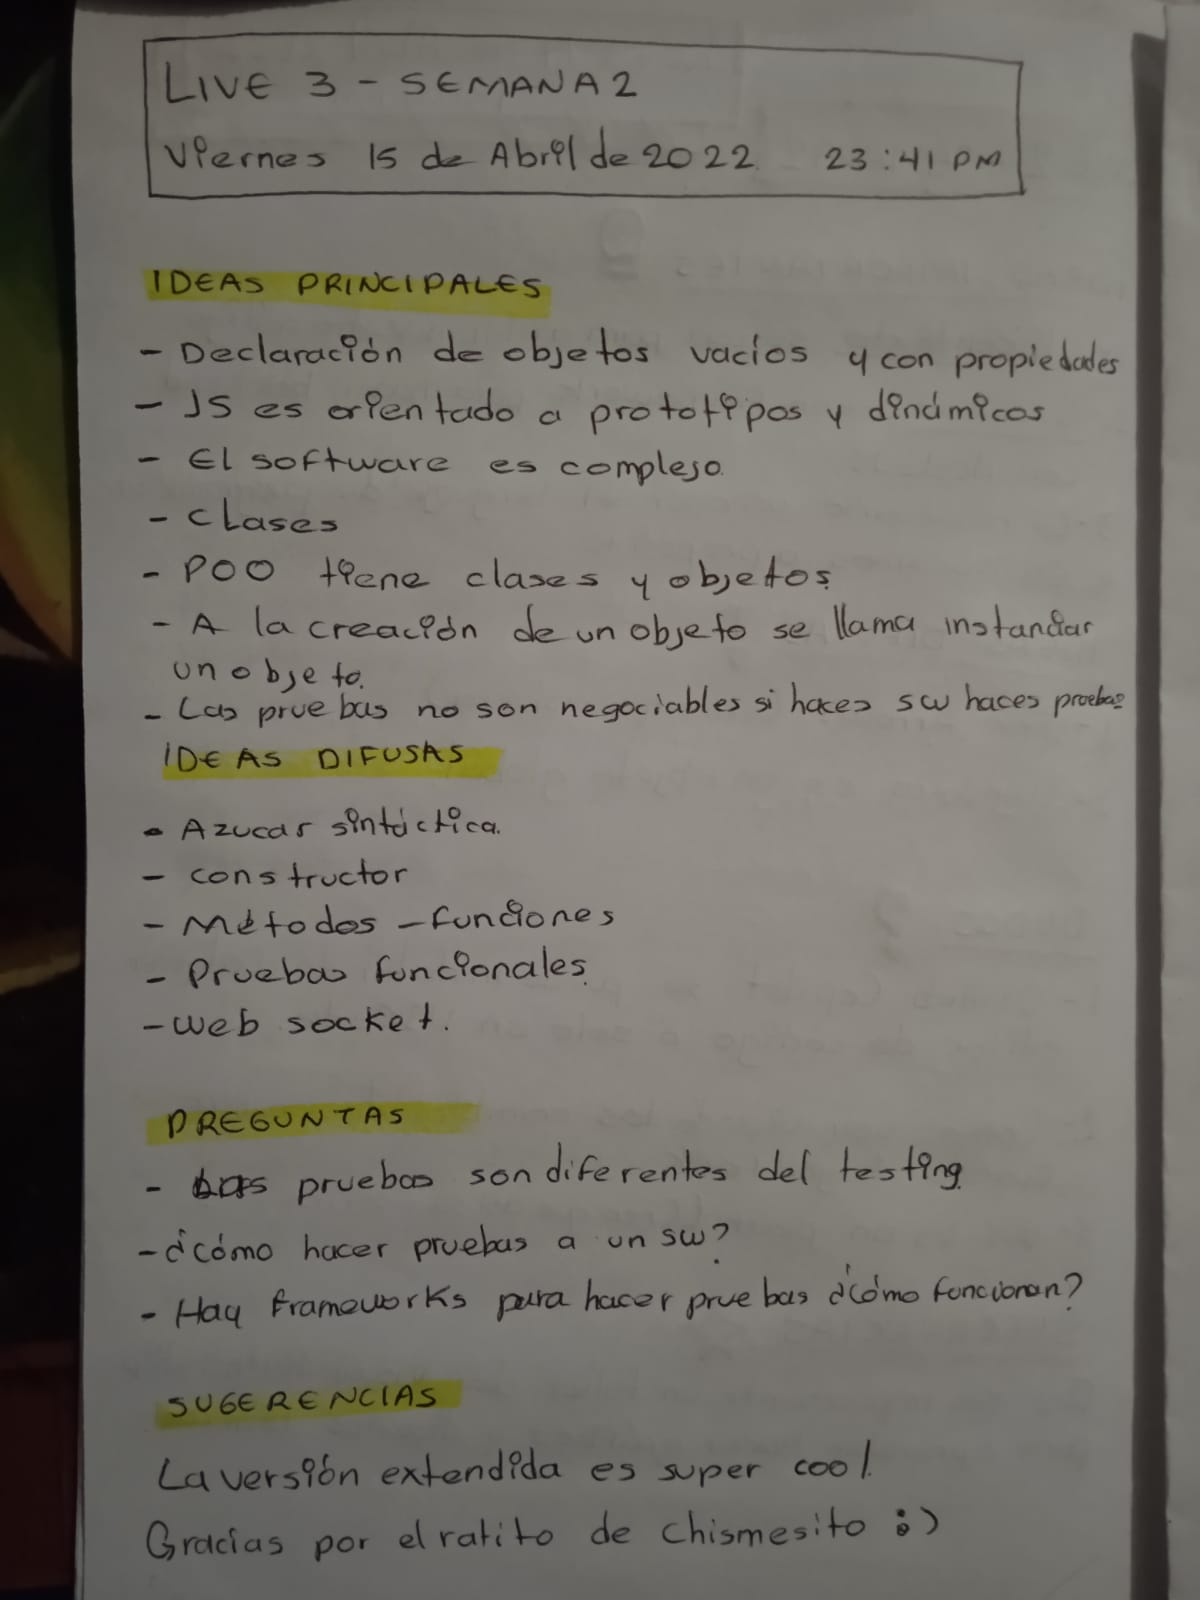 LIVE 3 - SEMANA 2
Viernes 15 de Abril de 2022. 23:41 PM
IDEAS PRINCIPALES
- Declaración de objetos vacíos y con propiedades
- JS es orientado a prototipos y dinámicos
- El software es complejo.
- Clases
- POO tiene clases y objetos.
- A la creación de un objeto se llama instanciar
un objeto.
- Las pruebas no son negociables si haces sw haces pruebas
IDEAS DIFUSAS
- Azucar sintáctica.
- constructor
- Métodos - funciones
- Pruebas funcionales.
- web socket.
PREGUNTAS
- Las pruebas son diferentes del testing.
- ¿cómo hacer pruebas a un sw?
- Hay frameworks para hacer pruebas ¿cómo funcionan?
SUGERENCIAS
La versión extendida es super cool.
Gracias por el ratito de chismesito :)